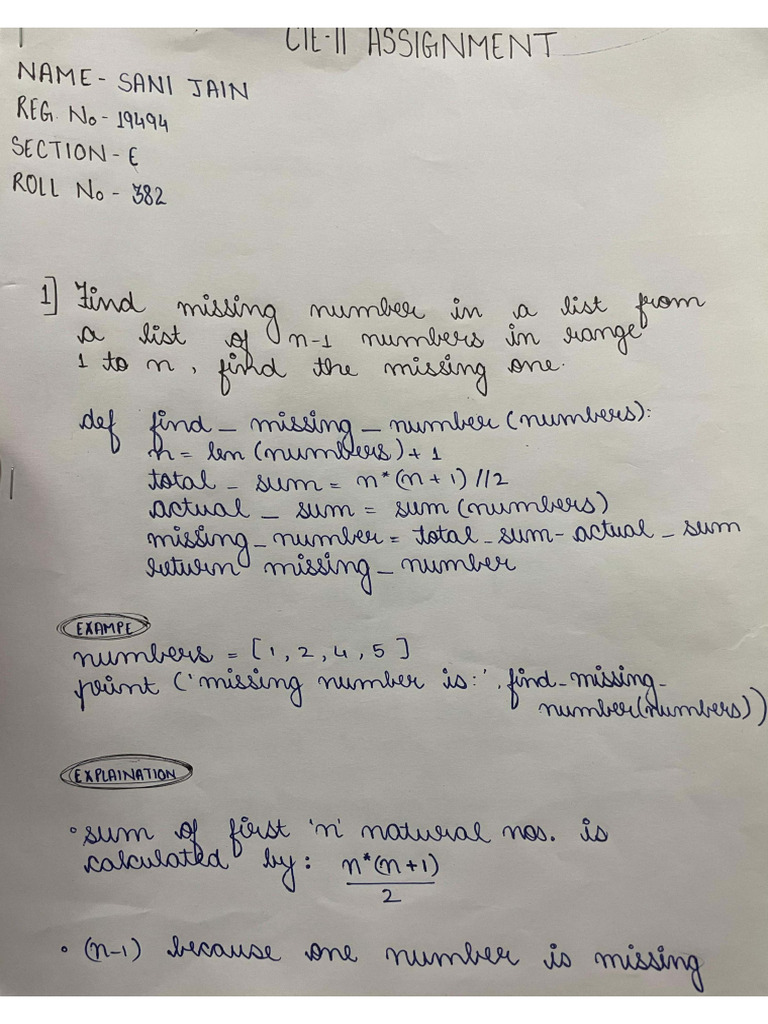 CIE-II ASSIGNMENT
NAME- SANI JAIN
REG. No - 19494
SECTION - E
ROLL No - 382
1] Find missing number in a list from
a list of n-1 numbers in range
1 to n, find the missing one.
def find_missing_number(numbers):
n = len(numbers)+1
total_sum = n*(n+1)//2
actual_sum = sum(numbers)
missing_number = total_sum-actual_sum
return missing_number
EXAMPE
numbers = [1, 2, 4, 5]
print ('missing number is:', find_missing_
number(numbers))
EXPLAINATION
• sum of first 'n' natural nos. is
calculated by: n*(n+1)
2
• (n-1) because one number is missing